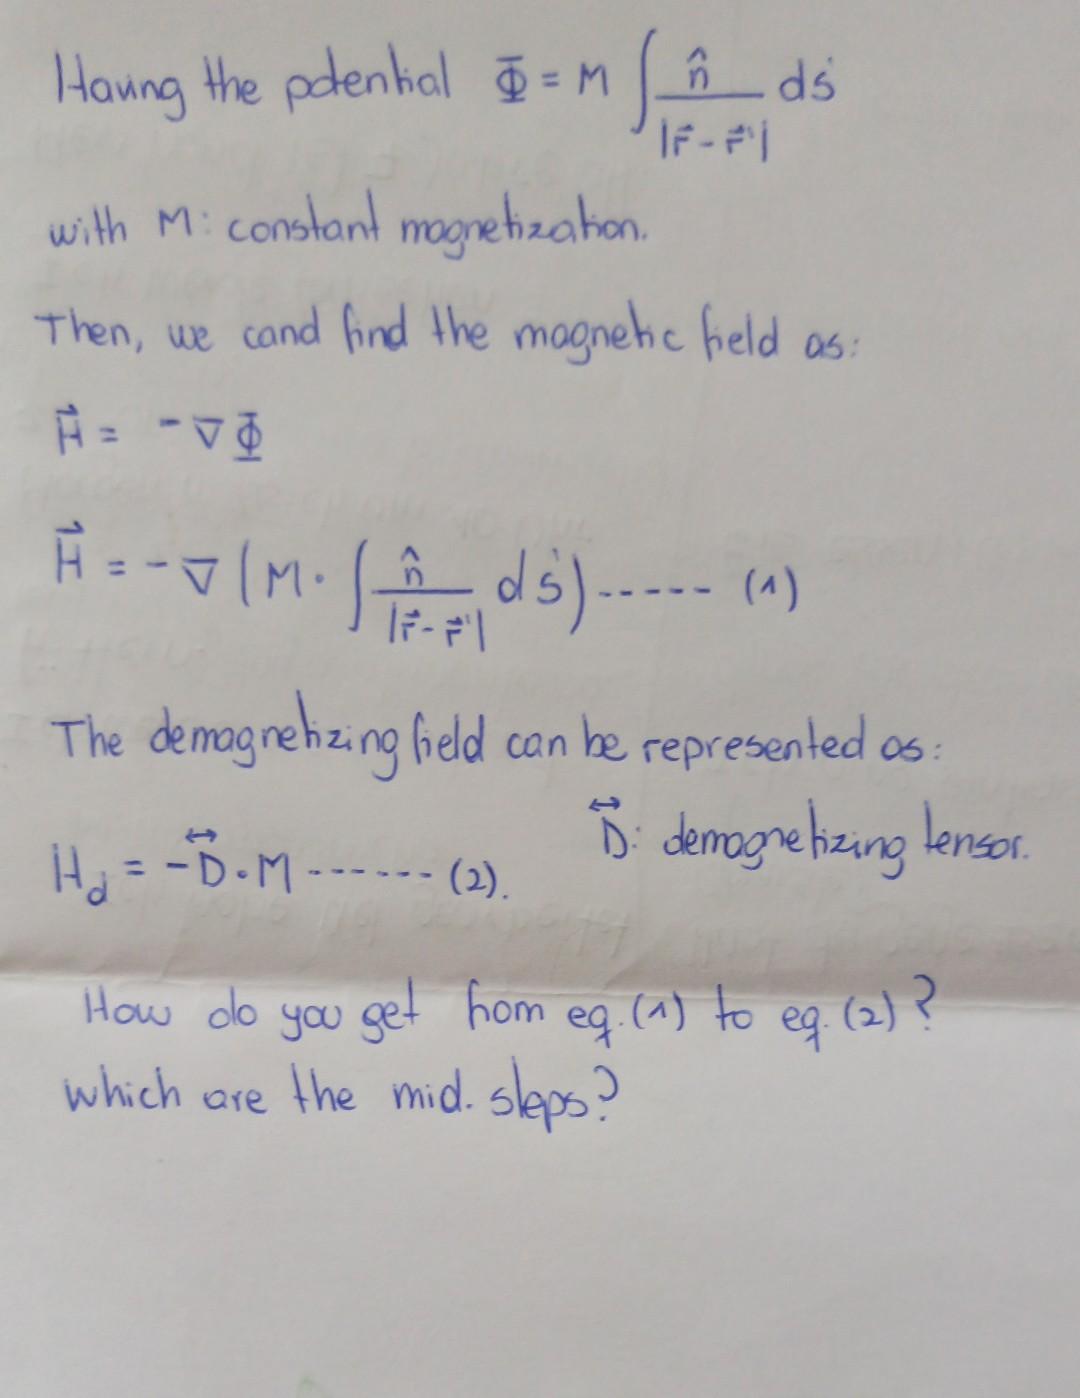 Having the potential Φ = M ∫ n̂ / |r⃗ - r⃗'| ds'
with M: constant magnetization.
Then, we cand find the magnetic field as:
H⃗ = -∇Φ
H⃗ = -∇(M · ∫ n̂ / |r⃗ - r⃗'| ds') ------ (1)
The demagnetizing field can be represented as:
D⃡: demagnetizing tensor.
H_d = -D⃡ · M ------- (2).
How do you get from eq. (1) to eq. (2)?
which are the mid. steps?